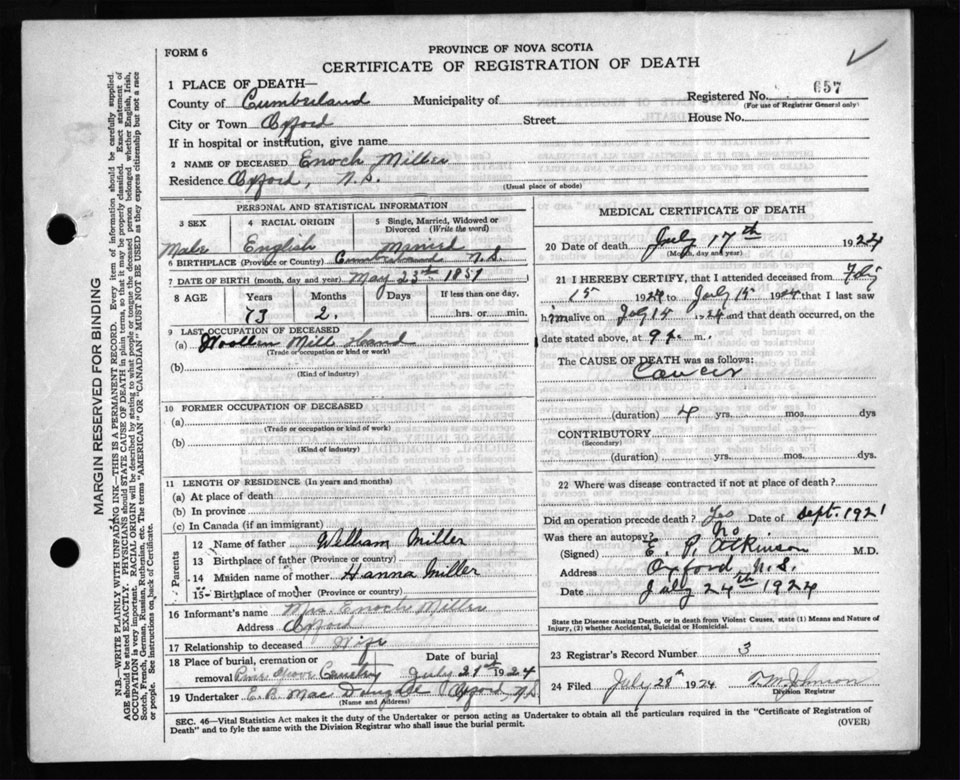 PROVINCE OF NOVA SCOTIA
FORM 6
CERTIFICATE OF REGISTRATION OF DEATH
1 PLACE OF DEATH—
County of Cumberland Municipality of Registered No. 657
(For use of Registrar General only)
City or Town Oxford Street House No.
If in hospital or institution, give name
2 NAME OF DECEASED Enoch Miller
Residence Oxford, N.S.
(Usual place of abode)
PERSONAL AND STATISTICAL INFORMATION
3 SEX 4 RACIAL ORIGIN 5 Single, Married, Widowed or Divorced (Write the word)
Male English Married
6 BIRTHPLACE (Province or Country) Cumberland N.S.
7 DATE OF BIRTH (month, day and year) May 23rd 1851
8 AGE Years Months Days If less than one day,
73 2. hrs. or min.
9 LAST OCCUPATION OF DECEASED
(a) Woollen Mill Hand
(Trade or occupation or kind or work)
(b)
(Kind of industry)
10 FORMER OCCUPATION OF DECEASED
(a)
(Trade or occupation or kind of work)
(b)
(Kind of industry)
11 LENGTH OF RESIDENCE (In years and months)
(a) At place of death
(b) In province
(c) In Canada (if an immigrant)
Parents
12 Name of father William Miller
13 Birthplace of father (Province or country)
14 Maiden name of mother Hanna Miller
15 Birthplace of mother (Province or country)
16 Informant's name Mrs. Enoch Miller
Address Oxford
17 Relationship to deceased Wife
18 Place of burial, cremation or removal Pine Grove Cemetery Date of burial July 21st 1924
19 Undertaker E.B. Mac Dougle Oxford N.S.
(Name and address)
MEDICAL CERTIFICATE OF DEATH
20 Date of death July 17th 1924
(Month, day and year)
21 I HEREBY CERTIFY, that I attended deceased from
15 1924 to July 15 1924 that I last saw
him alive on July 14 1924 and that death occurred, on
date stated above, at 9 p. m.
The CAUSE OF DEATH was as follows:
Cancer
(duration) 4 yrs. mos. dys
CONTRIBUTORY
(Secondary)
(duration) yrs. mos. dys.
22 Where was disease contracted if not at place of death?
Did an operation precede death? Yes Date of Sept. 1921
Was there an autopsy? No
(Signed) E. P. Atkinson M.D.
Address Oxford N.S.
Date July 24th 1924
State the Disease causing Death, or in death from Violent Causes, state (1) Means and Nature of
Injury, (2) whether Accidental, Suicidal or Homicidal.
23 Registrar's Record Number 3
24 Filed July 28th 1924 Johnson
Division Registrar
SEC. 46—Vital Statistics Act makes it the duty of the Undertaker or person acting as Undertaker to obtain all the particulars required in the "Certificate of Registration of
Death" and to fyle the same with the Division Registrar who shall issue the burial permit.
(OVER)
MARGIN RESERVED FOR BINDING
N.B.—WRITE PLAINLY WITH UNFADING INK—THIS IS A PERMANENT RECORD. Every item of information should be carefully supplied.
AGE should be stated EXACTLY. PHYSICIANS should STATE CAUSE OF DEATH in plain terms, so that it may be properly classified. Exact statement of
OCCUPATION is very important. RACIAL ORIGIN will be described by stating to what people or tongue the deceased person belonged whether English, Irish,
Scotch, French, German, Russian, Ruthenian, etc. The terms "AMERICAN" or "CANADIAN" MUST NOT BE USED as they express citizenship but not a race
or people. See instructions on back of Certificate.